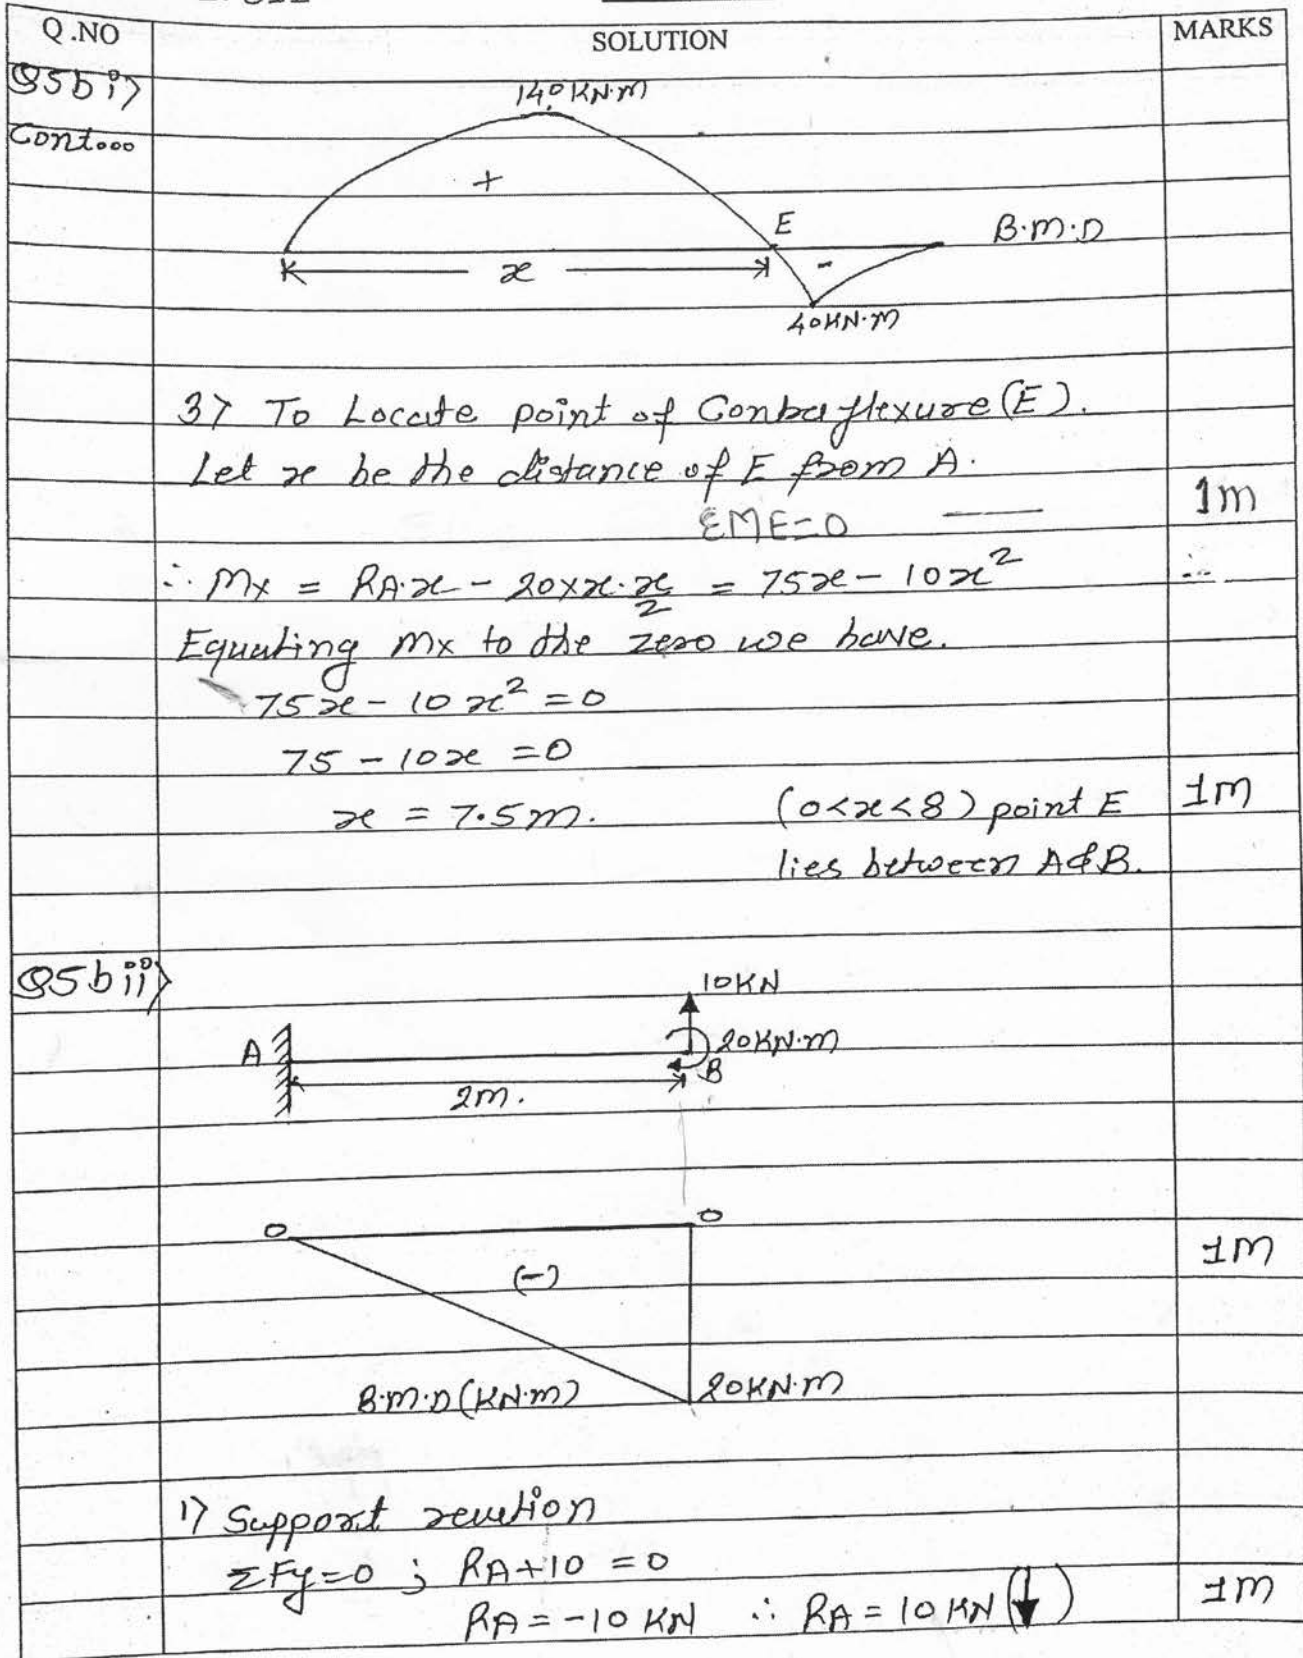 Q.NO SOLUTION MARKS
Q5b i)
Cont...
140 KN.m
+
E
B.M.D
x
-
40KN.m
3) To Locate point of Contraflexure (E).
Let x be the distance of E from A.
ΣME=0 1m
∴ Mx = RA.x - 20×x.x/2 = 75x - 10x²
Equating Mx to the zero we have.
75x - 10x² = 0
75 - 10x = 0
x = 7.5m. (0<x<8) point E 1m
lies between A&B.
Q5b ii)
10KN
A 20KN.m
B
2m.
0 0
(-) 1m
B.M.D(KN.m) 20KN.m
1) Support reaction
ΣFy=0 ; RA+10 = 0
RA = -10 KN ∴ RA = 10 KN (↓) 1m